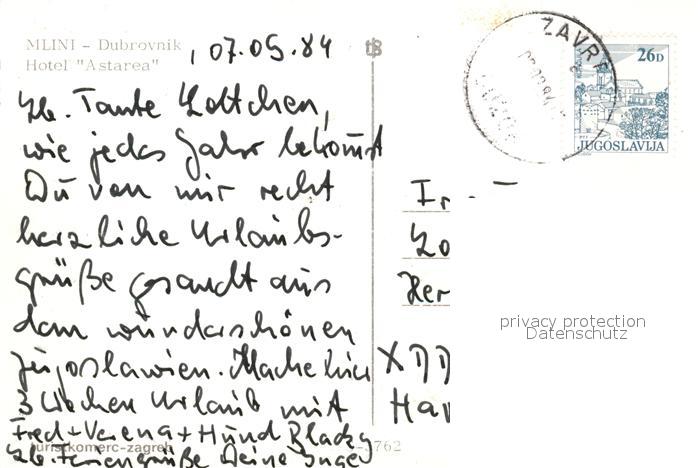 MLINI – Dubrovnik
Hotel "Astarea"
, 07.09.84
Lb. Tante Lottchen,
wie jedes Jahr bekommst
Du von mir recht
herzliche Urlaubs-
grüße gesandt aus
dem wunderschönen
Jugoslawien. Mache hier
3 Wochen Urlaub mit
Fred + Verena + Hund Blacky
Lb. Feriengrüße Deine Inge
turistkomerc-zagreb
3762
ZAVR
26D
JUGOSLAVIJA
Lo
Her
Har
privacy protection
Datenschutz